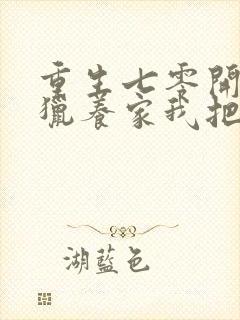 重生七零開
獵養家我把
湖藍色